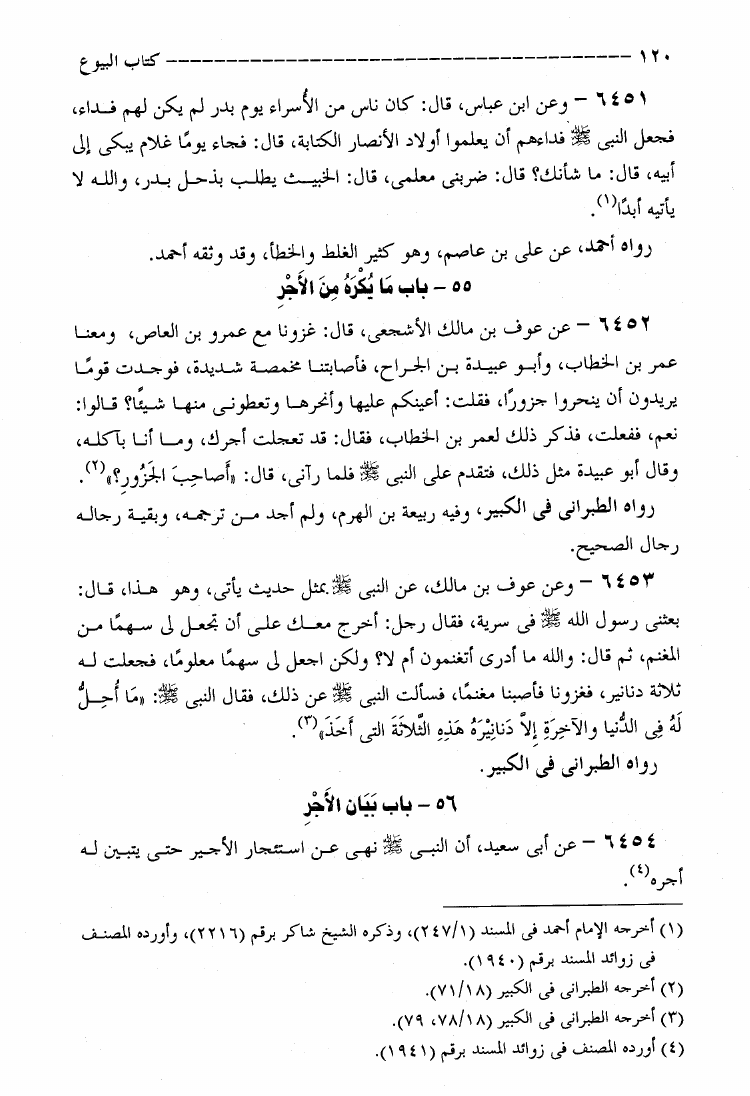 ١٢٠ --------------------------------------- كتاب البيوع
٦٤٥١ – وعن ابن عباس، قال: كان ناس من الأُسراء يوم بدر لم يكن لهم فداء،
فجعل النبى ﷺ فداءهم أن يعلموا أولاد الأنصار الكتابة، قال: فجاء يومًا غلام يبكى إلى
أبيه، قال: ما شأنك؟ قال: ضربنى معلمى، قال: الخبيث يطلب بذحل بدر، والله لا
يأتيه أبدًا(١).
رواه أحمد، عن على بن عاصم، وهو كثير الغلط والخطأ، وقد وثقه أحمد.
٥٥ – باب مَا يُكْرَهُ مِنَ الأَجْرِ
٦٤٥٢ – عن عوف بن مالك الأشجعى، قال: غزونا مع عمرو بن العاص، ومعنا
عمر بن الخطاب، وأبو عبيدة بن الجراح، فأصابتنا مخمصة شديدة، فوجدت قومًا
يريدون أن ينحروا جزورًا، فقلت: أعينكم عليها وأنحرها وتعطونى منها شيئًا؟ قالوا:
نعم، ففعلت، فذكر ذلك لعمر بن الخطاب، فقال: قد تعجلت أجرك، وما أنا بآكله،
وقال أبو عبيدة مثل ذلك، فتقدم على النبى ﷺ فلما رآنى، قال: «أَصاحِبَ الجَزُورِ؟»(٢).
رواه الطبرانى فى الكبير، وفيه ربيعة بن الهرم، ولم أجد من ترجمه، وبقية رجاله
رجال الصحيح.
٦٤٥٣ – وعن عوف بن مالك، عن النبى ﷺ بمثل حديث يأتى، وهو هذا، قال:
بعثنى رسول الله ﷺ فى سرية، فقال رجل: أخرج معك على أن تجعل لى سهمًا من
المغنم، ثم قال: والله ما أدرى أتغنمون أم لا؟ ولكن اجعل لى سهمًا معلومًا، فجعلت له
ثلاثة دنانير، فغزونا فأصبنا مغنمًا، فسألت النبى ﷺ عن ذلك، فقال النبى ﷺ: «مَا أُحِلُّ
لَهُ فِى الدُّنيا والآخِرَةِ إِلاَّ دَنانِيْرَهُ هَذِهِ الثَّلاثَةَ التى أَخَذَ»(٣).
رواه الطبرانى فى الكبير.
٥٦ – باب بَيَان الأَجْرِ
٦٤٥٤ – عن أبى سعيد، أن النبى ﷺ نهى عن استئجار الأجير حتى يتبين له
أجره(٤).
(١) أخرجه الإمام أحمد فى المسند (٢٤٧/١)، وذكره الشيخ شاكر برقم (٢٢١٦)، وأورده المصنف
فى زوائد المسند برقم (١٩٤٠).
(٢) أخرجه الطبرانى فى الكبير (٧١/١٨).
(٣) أخرجه الطبرانى فى الكبير (٧٨/١٨، ٧٩).
(٤) أورده المصنف فى زوائد المسند برقم (١٩٤١).